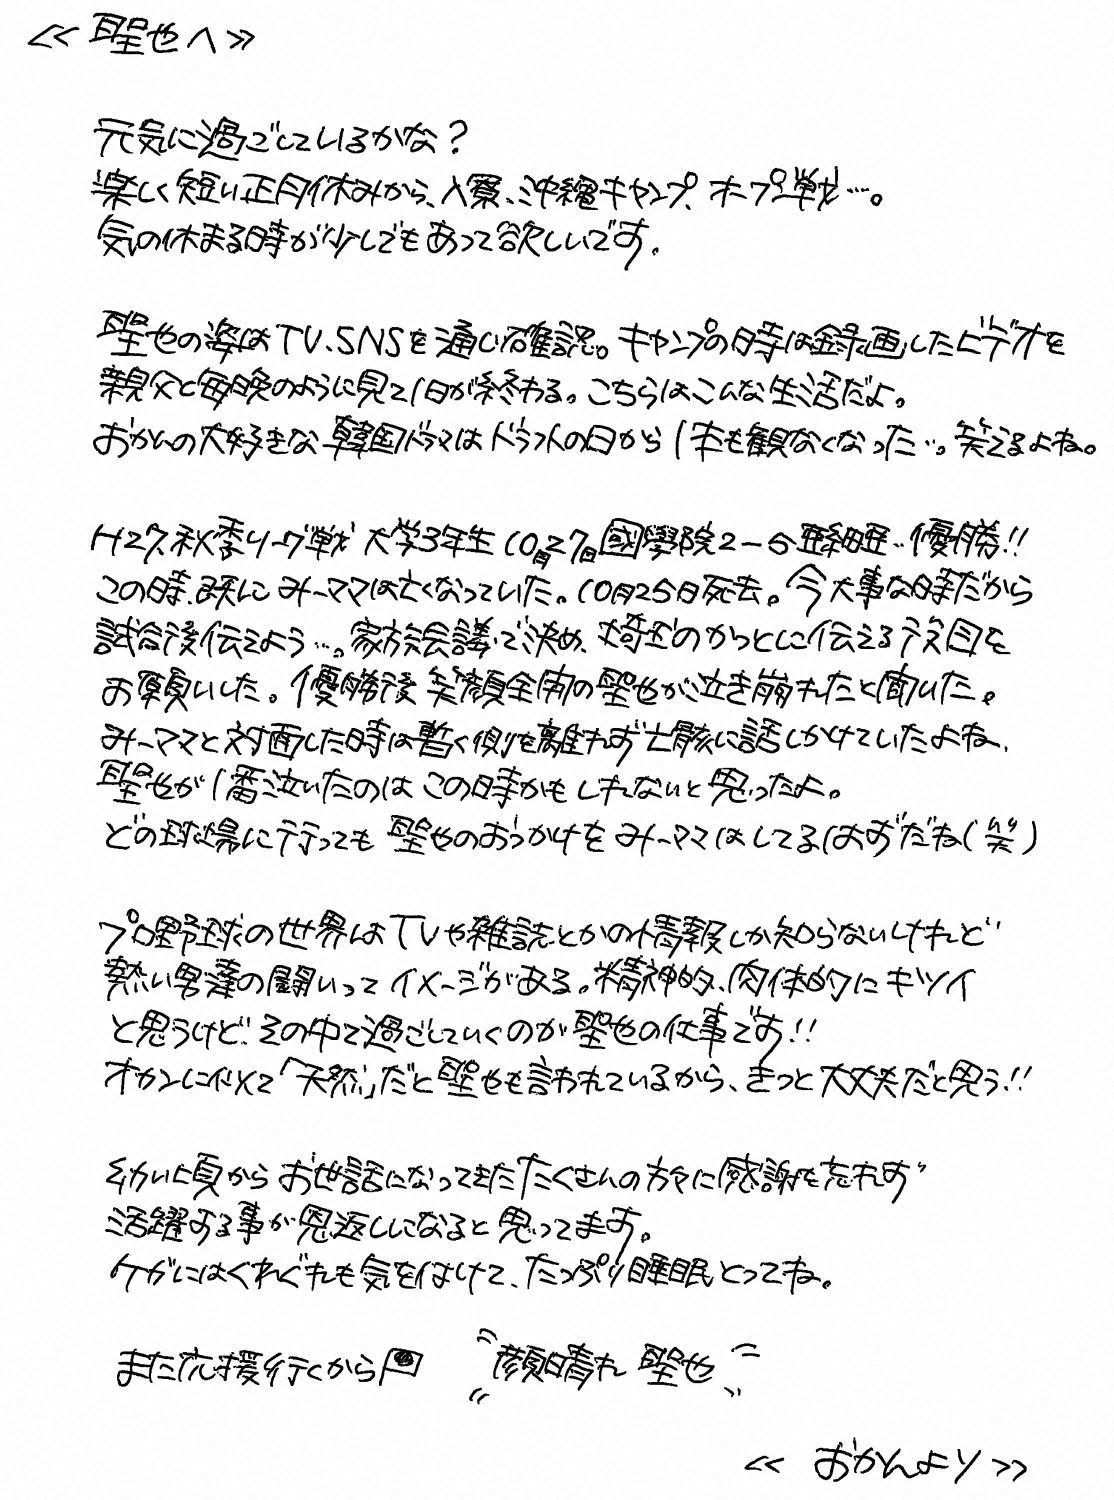 ≪聖也へ≫
元気に過ごしているかな?
楽しく短い正月休みから、入寮、沖縄キャンプ、オープン戦…。
気の休まる時が少しでもあって欲しいです。
聖也の姿はTV、SNSを通じ確認。キャンプの時は録画したビデオを
親父と毎晩のように見て1日が終わる。こちらはこんな生活だよ。
おかんの大好きな韓国ドラマはドラフトの日から1本も観なくなった…。笑えるよね。
H27、秋季リーグ戦 大学3年生 10月27日國學院2-6亜細亜…優勝!!
この時、既にみーママは亡くなっていた。10月25日死去。今大事な時だから
試合後伝えよう…。家族会議で決め、埼玉のかっとしに伝える役目を
お願いした。優勝後 笑顔全開の聖也が泣き崩れたと聞いた。
みーママと対面した時は暫く側を離れず亡骸に話しかけていたよね、
聖也が1番泣いたのはこの時かもしれないと思ったよ。
どの球場に行っても聖也のおっかけをみーママはしてるはずだね(笑)
プロ野球の世界はTVや雑誌とかの情報しか知らないけれど
熱い男達の闘いってイメージがある。精神的、肉体的にキツイ
と思うけど、その中で過ごしていくのが聖也の仕事です!!
オカンに似て「天然」だと聖也も言われているから、きっと大丈夫だと思う!!
幼い頃からお世話になってきたたくさんの方々に感謝を忘れず
活躍する事が恩返しになると思ってます。
ケガにはくれぐれも気を付けて、たっぷり睡眠とってね。
また応援行くから "顔晴れ 聖也"
≪おかんより≫